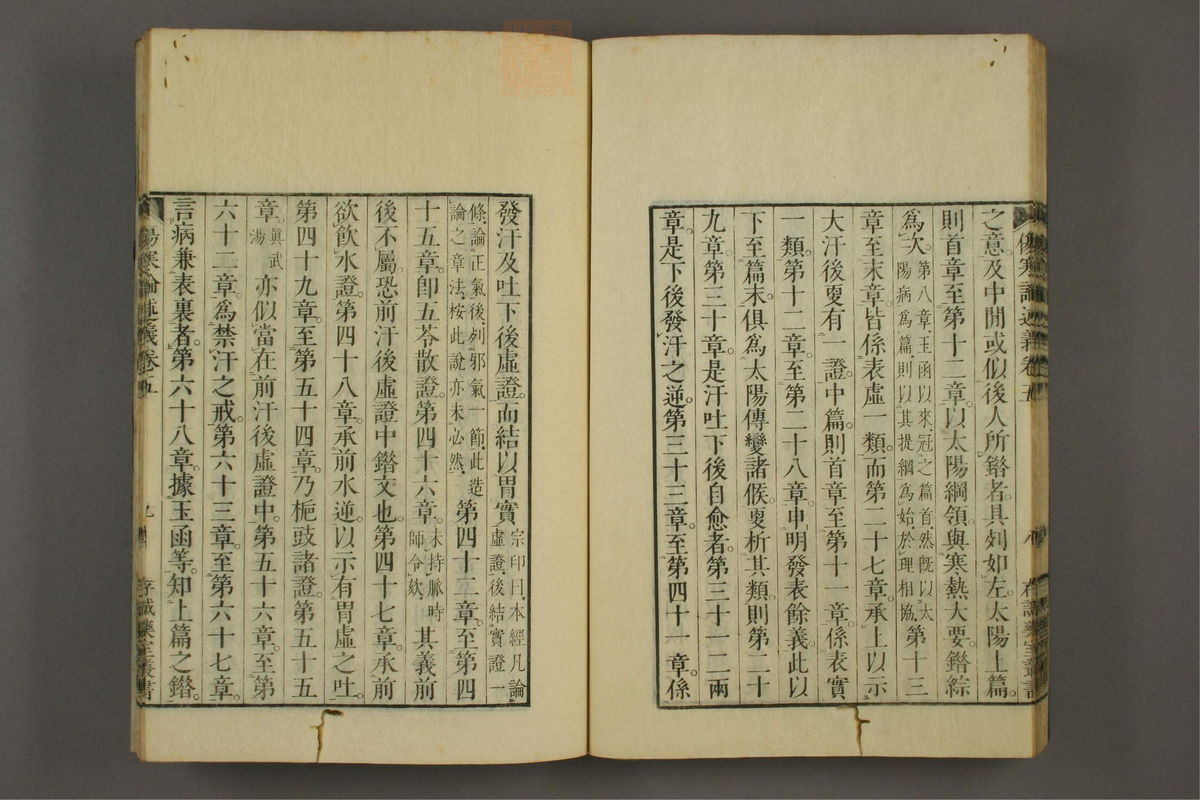 之意。及中閒或似後人所錯者。具列如左。太陽上篇。
則首章至第十二章。以太陽綱領。與寒熱大要。錯綜
爲次。第八章。玉函以來。冠之篇首。然既以太
陽病爲篇。則以其提綱爲始。於理相協。第十三
章至末章。皆係表虛一類。而第二十七章。承上以示
大汗後更有一證。中篇。則首章至第十一章。係表實
一類。第十二章。至第二十八章。申明發表餘義。此以
下至篇末。俱爲太陽傳變諸候。更析其類。則第二十
九章第三十章。是汗吐下後自愈者。第三十一二兩
章。是下後發汗之逆。第三十三章。至第四十一章。係
傷寒論述義卷五
八
存誠藥室叢書
發汗及吐下後虛證。而結以胃實。宗印曰。本經凡論
虛證。後結實證一
條。論正氣後。列邪氣一節。此造
論之章法。按此說亦未必然。第四十二章。至第四
十五章。卽五苓散證。第四十六章。未持脈時
師令欬。其義前
後不屬。恐前汗後虛證中錯文也。第四十七章。承前
欲飮水證。第四十八章。承前水逆。以示有胃虛之吐。
第四十九章。至第五十四章。乃梔豉諸證。第五十五
章。眞武
湯亦似當在前汗後虛證中。第五十六章。至第
六十二章。爲禁汗之戒。第六十三章。至第六十七章。
言病兼表裏者。第六十八章。據玉函等。知上篇之錯。
傷寒論述義卷五
九
存誠藥室叢書